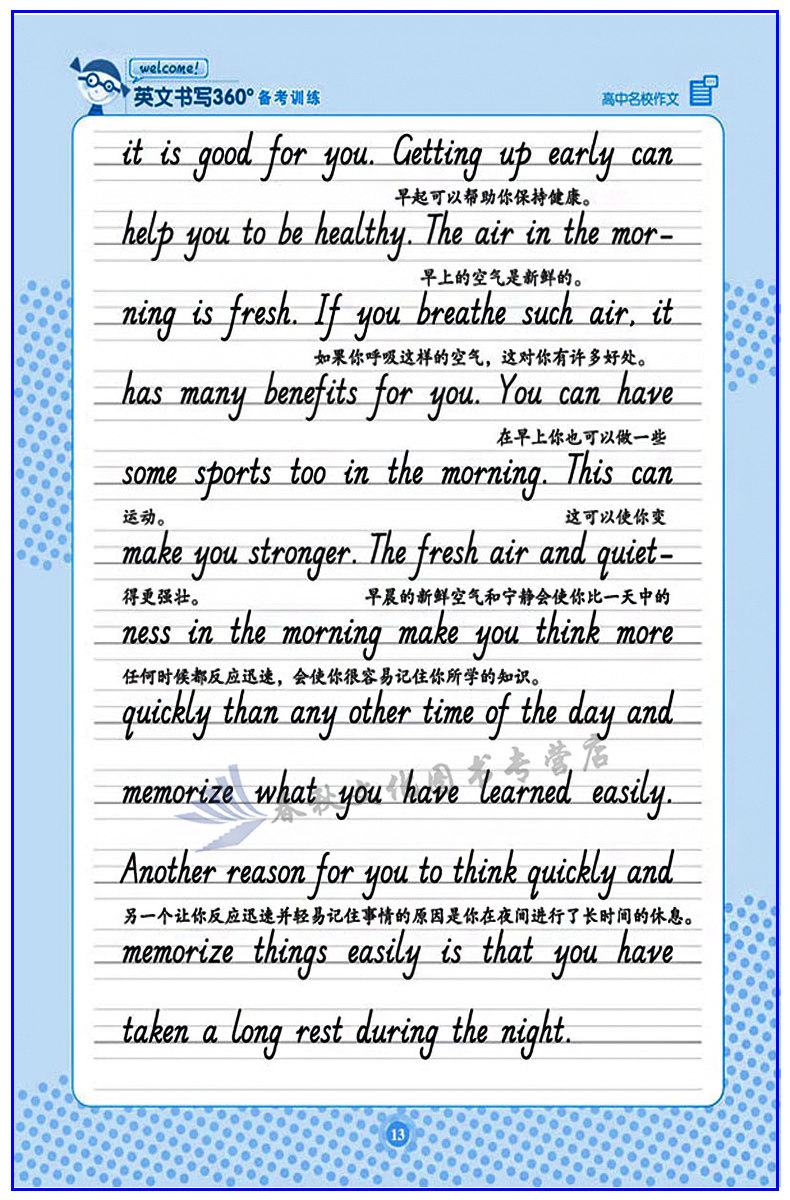 welcome!
英文书写360° 备考训练
高中名校作文
it is good for you. Getting up early can
早起可以帮助你保持健康。
help you to be healthy. The air in the mor-
早上的空气是新鲜的。
ning is fresh. If you breathe such air, it
如果你呼吸这样的空气，这对你有许多好处。
has many benefits for you. You can have
在早上你也可以做一些
some sports too in the morning. This can
运动。 这可以使你变
make you stronger. The fresh air and quiet-
得更强壮。 早晨的新鲜空气和宁静会使你比一天中的
ness in the morning make you think more
任何时候都反应迅速，会使你很容易记住你所学的知识。
quickly than any other time of the day and
春秋文化图书专营店
memorize what you have learned easily.
Another reason for you to think quickly and
另一个让你反应迅速并轻易记住事情的原因是你在夜间进行了长时间的休息。
memorize things easily is that you have
taken a long rest during the night.
13